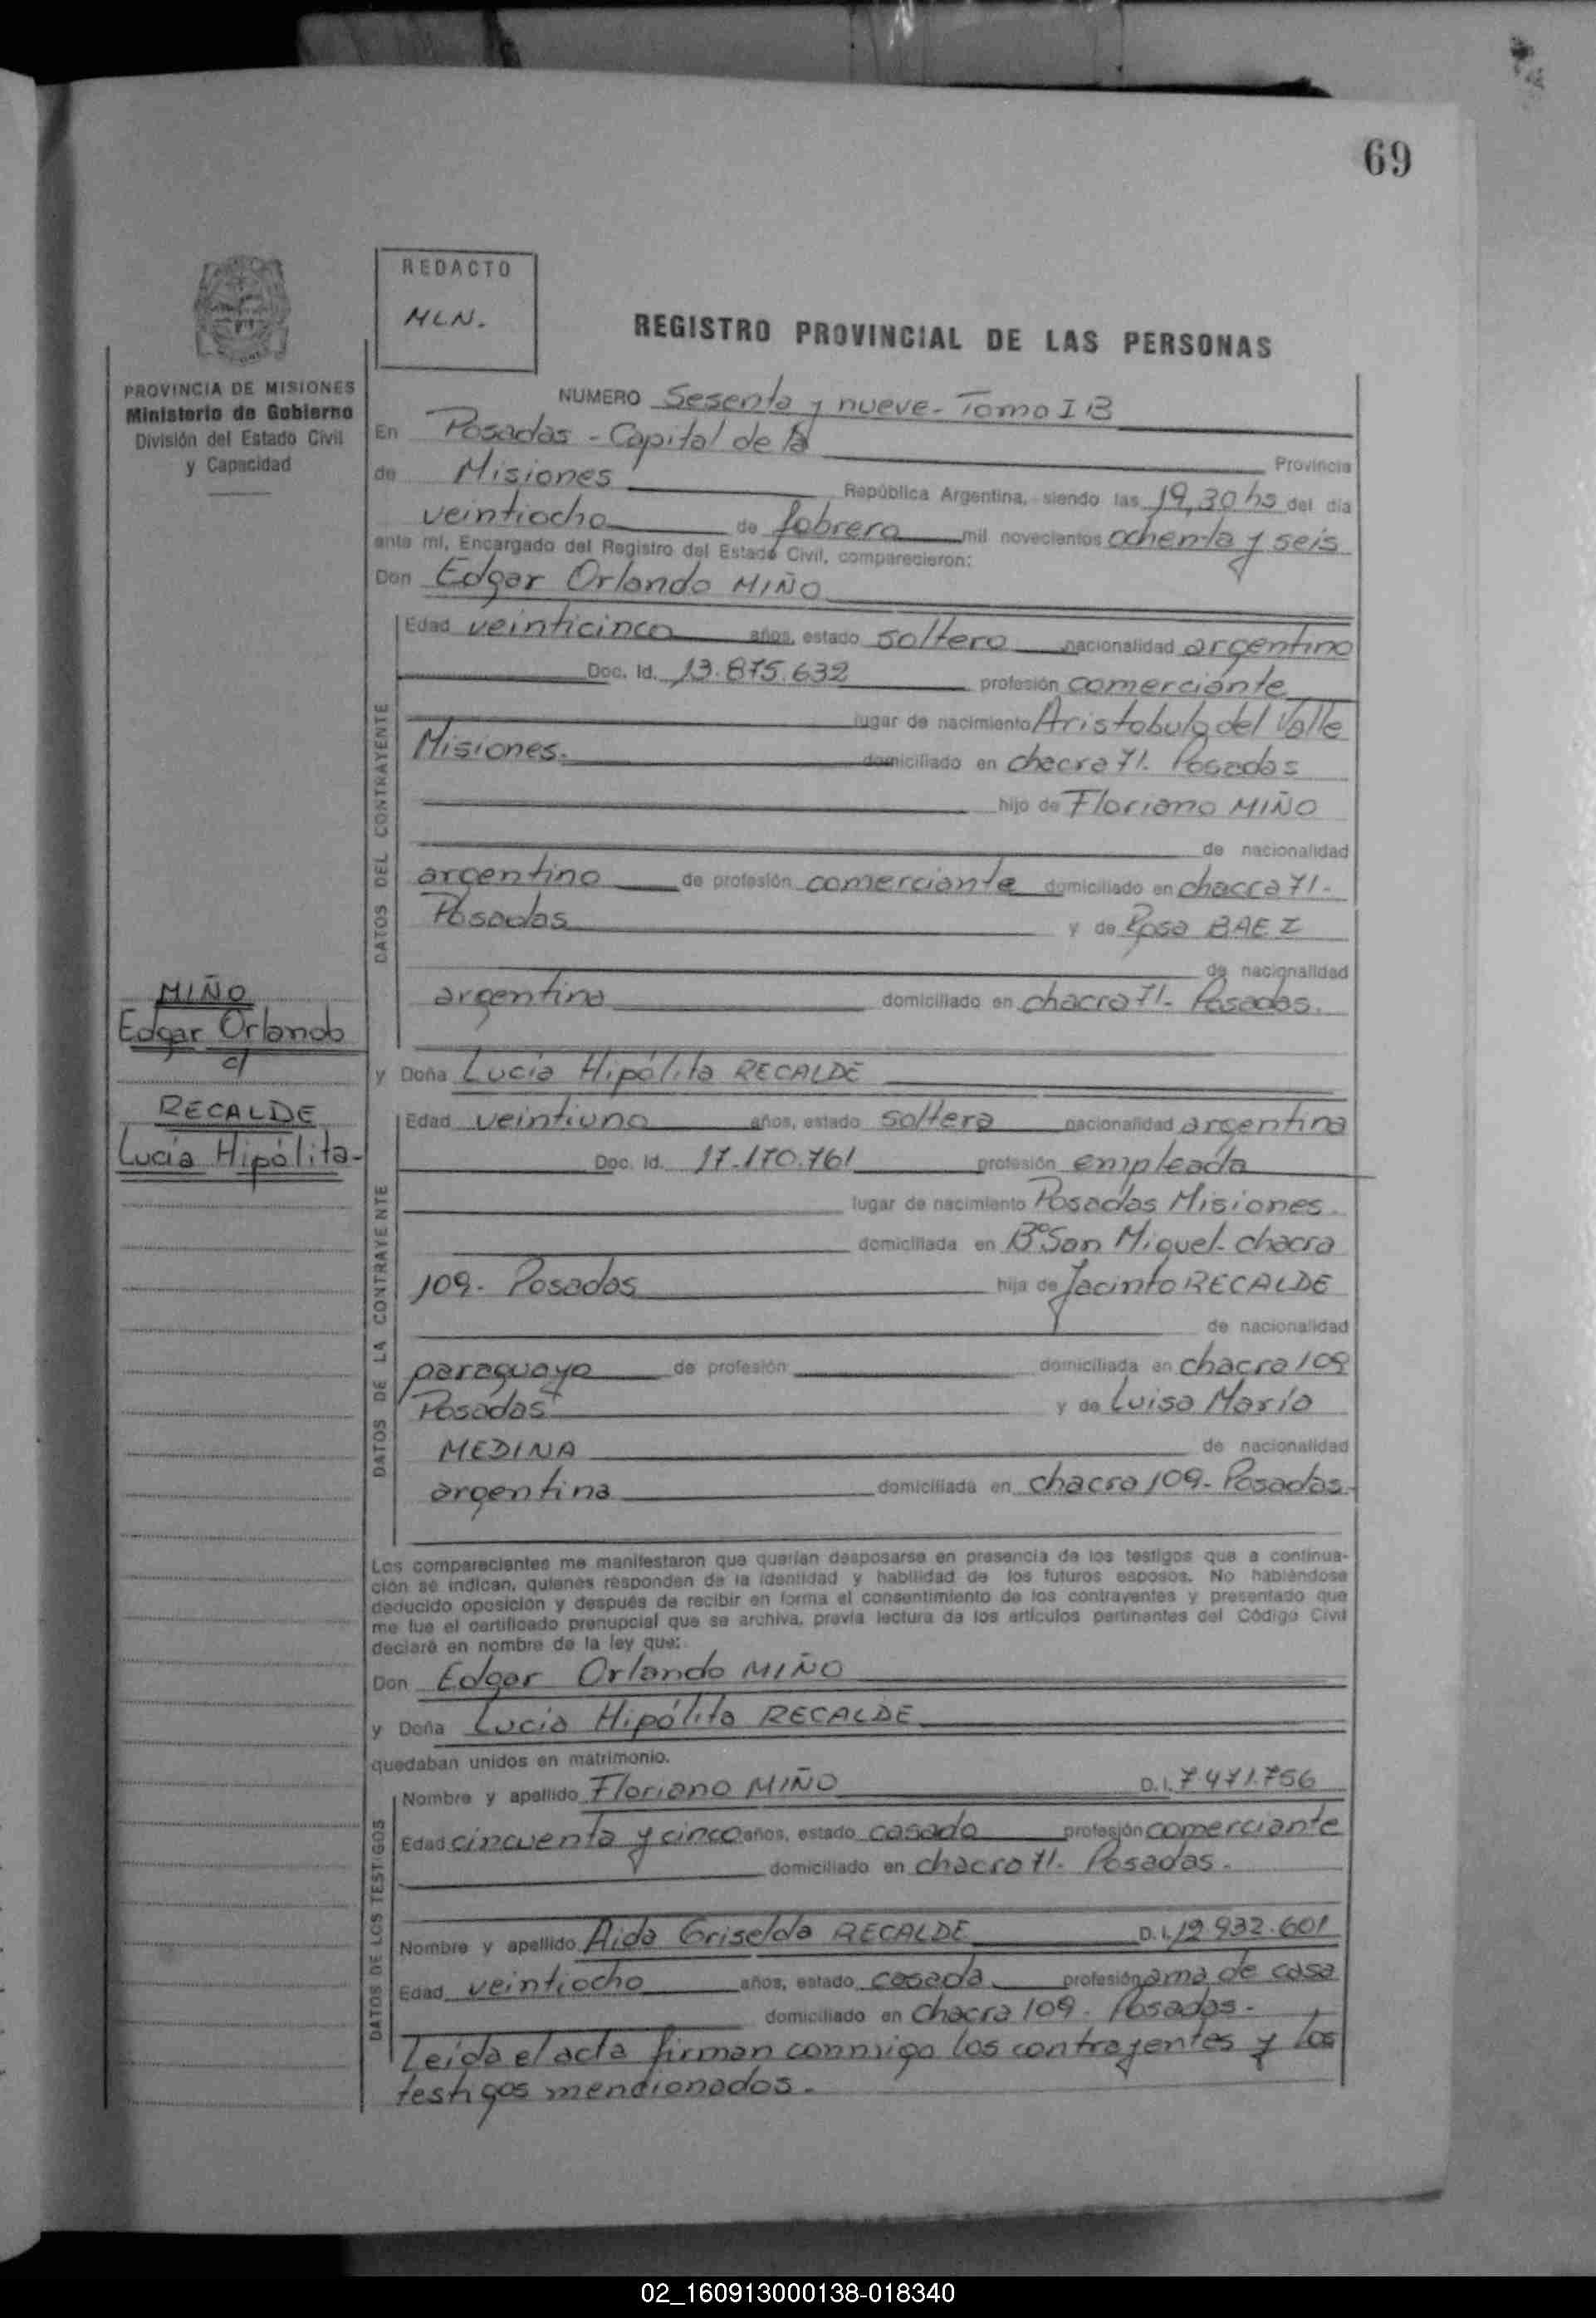 69
REDACTO
MLN.
REGISTRO PROVINCIAL DE LAS PERSONAS
PROVINCIA DE MISIONES
Ministerio de Gobierno
División del Estado Civil
y Capacidad
NUMERO Sesenta y nueve - Tomo I B
En Posadas - Capital de la Provincia
de Misiones República Argentina, siendo las 19,30 hs del día
veintiocho de febrero mil novecientos ochenta y seis
ante mí, Encargado del Registro del Estado Civil, comparecieron:
Don Edgar Orlando MIÑO
DATOS DEL CONTRAYENTE
Edad veinticinco años, estado soltero nacionalidad argentino
Doc. Id. 13.875.632 profesión comerciante
lugar de nacimiento Aristobulo del Valle
Misiones. domiciliado en chacra 71. Posadas
hijo de Floriano MIÑO
de nacionalidad
argentino de profesión comerciante domiciliado en chacra 71-
Posadas y de Rosa BAEZ
de nacionalidad
argentina domiciliado en chacra 71- Posadas.
MIÑO
Edgar Orlando
c/
RECALDE
Lucía Hipólita-
y Doña Lucía Hipólita RECALDE
DATOS DE LA CONTRAYENTE
Edad veintiuno años, estado soltera nacionalidad argentina
Doc. Id. 17.170.761 profesión empleada
lugar de nacimiento Posadas Misiones.
domiciliada en Bº San Miguel- chacra
109- Posadas hija de Jacinto RECALDE
de nacionalidad
paraguayo de profesión domiciliada en chacra 109
Posadas y de Luisa María
MEDINA de nacionalidad
argentina domiciliada en chacra 109- Posadas-
Los comparecientes me manifestaron que querían desposarse en presencia de los testigos que a continua-
ción se indican, quienes responden de la identidad y habilidad de los futuros esposos. No habiéndose
deducido oposición y después de recibir en forma el consentimiento de los contrayentes y presentado que
me fue el certificado prenupcial que se archiva, previa lectura de los artículos pertinentes del Código Civil
declaré en nombre de la ley que:
Don Edgar Orlando MIÑO
y Doña Lucía Hipólita RECALDE
quedaban unidos en matrimonio.
DATOS DE LOS TESTIGOS
Nombre y apellido Floriano MIÑO D.I. 7.471.756
Edad cincuenta y cinco años, estado casado profesión comerciante
domiciliado en chacra 71- Posadas.
Nombre y apellido Aida Griselda RECALDE D.I. 12.932.601
Edad veintiocho años, estado casada profesión ama de casa
domiciliado en chacra 109- Posadas-
Leída el acta firman conmigo los contrayentes y los
testigos mencionados.
02_160913000138-018340